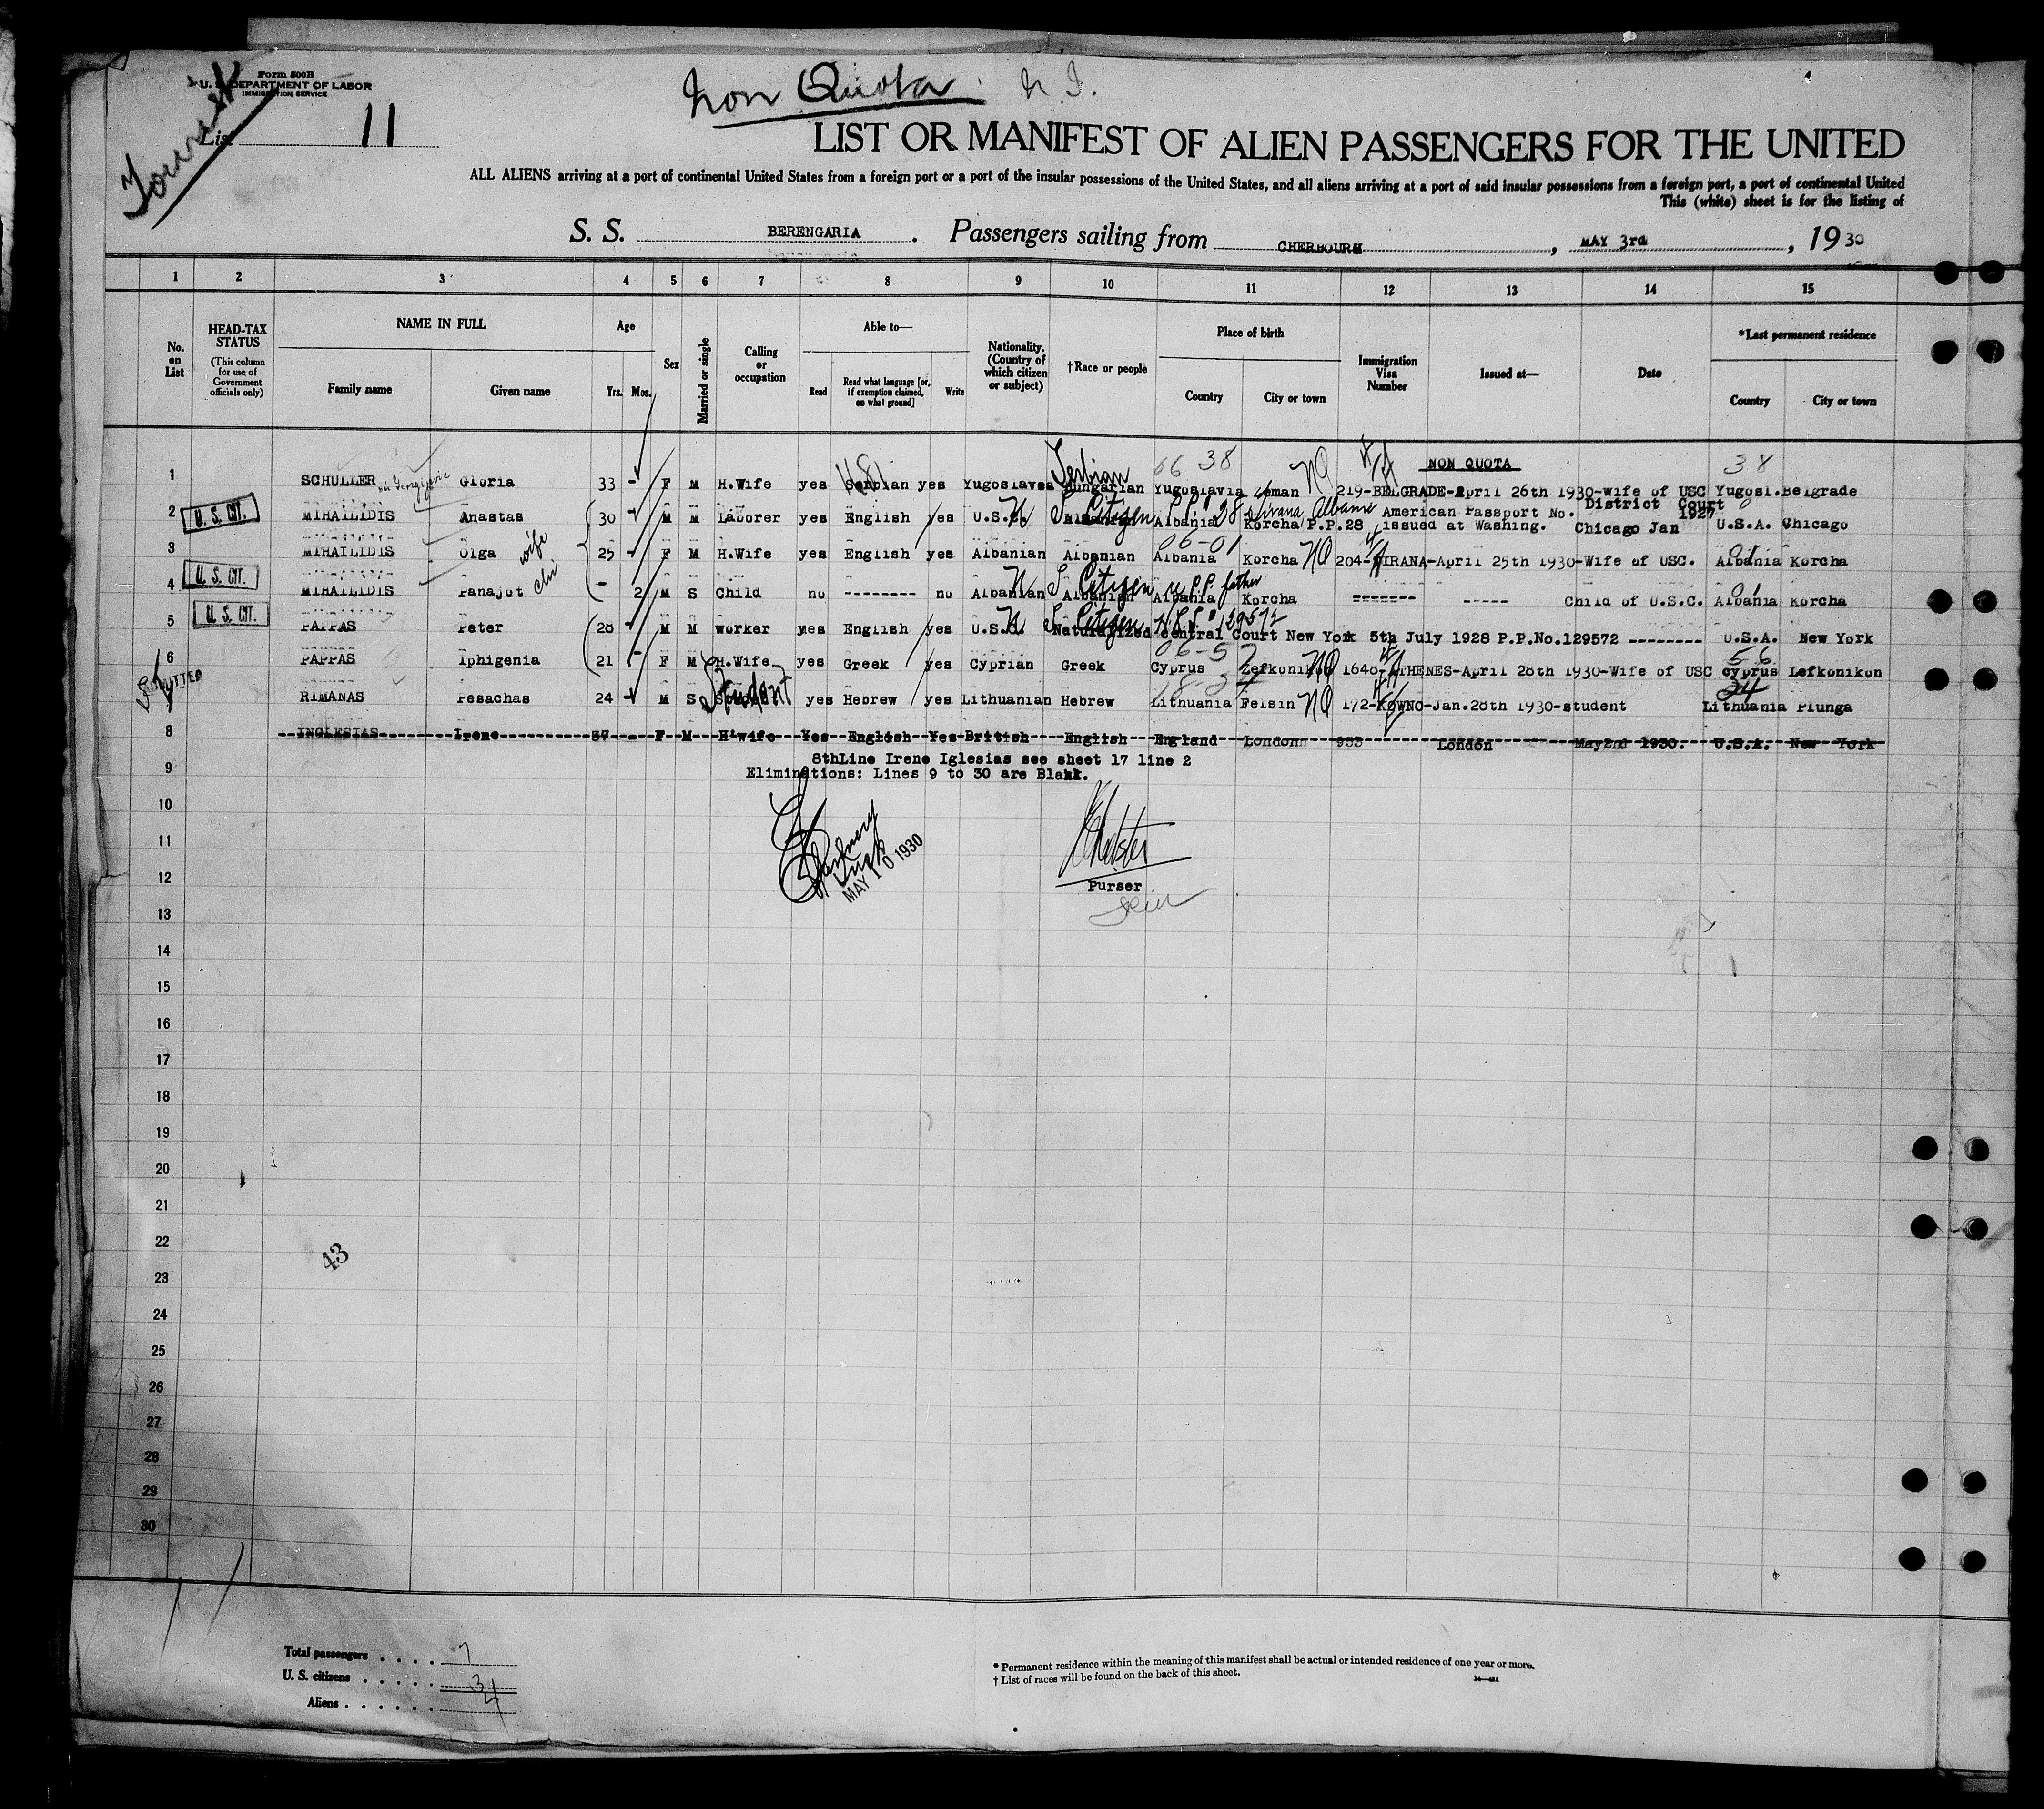 Form 500B
U. S. DEPARTMENT OF LABOR
IMMIGRATION SERVICE
Tourist
List 11
Non Quota
LIST OR MANIFEST OF ALIEN PASSENGERS FOR THE UNITED
ALL ALIENS arriving at a port of continental United States from a foreign port or a port of the insular possessions of the United States, and all aliens arriving at a port of said insular possessions from a foreign port, a port of continental United
This (white) sheet is for the listing of
S. S. BERENGARIA. Passengers sailing from CHERBOURG, MAY 3rd, 1930
1 2 3 4 5 6 7 8 9 10 11 12 13 14 15
No. on List
HEAD-TAX STATUS
(This column for use of Government officials only)
NAME IN FULL
Family name Given name
Age
Yrs. Mos.
Sex
Married or single
Calling or occupation
Able to—
Read Read what language [or, if exemption claimed, on what ground] Write
Nationality. (Country of which citizen or subject)
†Race or people
Place of birth
Country City or town
Immigration Visa Number
Issued at—
Date
*Last permanent residence
Country City or town
NON QUOTA
Serbian 06 38 NQ 38
1 SCHULLER Gloria 33 - F M H.Wife yes Serbian yes Yugoslavea Hungarian Yugoslavia Zeman 219-BELGRADE-April 26th 1930-wife of USC Yugosl. Belgrade
District Court 1927
2 U. S. CIT. MIHAILIDIS Anastas 30 - M M Laborer yes English yes U.S.C. Albanian Albania Korcha P.P.28 American Passport No. issued at Washing. Chicago Jan U.S.A. Chicago
U S Citizen P.P. # 28 Tirana Albania
wife 06-01
3 MIHAILIDIS Olga 25 - F M H.Wife yes English yes Albanian Albanian Albania Korcha NQ 204-TIRANA-April 25th 1930-Wife of USC. Albania Korcha
U S Citizen P.P. father 01
4 U. S. CIT. MIHAILIDIS Panajot - 2 M S Child no -------- no Albanian Albanian Albania Korcha ------- ----- Child of U.S.C. Albania Korcha
U S Citizen 129572
5 U. S. CIT. PAPPAS Peter 28 - M M worker yes English yes U.S.C. Naturalized Central Court New York 5th July 1928 P.P.No.129572 -------- U.S.A. New York
06-57 56
6 PAPPAS Iphigenia 21 - F M H.Wife yes Greek yes Cyprian Greek Cyprus Lefkonikon NQ 1648-ATHENES-April 28th 1930-Wife of USC cyprus Lefkonikon
ADMITTED
Student 24
7 RIMANAS Pesachas 24 - M S Student yes Hebrew yes Lithuanian Hebrew Lithuania Felsin NQ 172-KOWNO-Jan.28th 1930-student Lithuania Plunga
8 INGLESIAS Irene 37 - F M H'wife Yes English Yes British English England London 953 London May2nd 1930. U.S.A. New York
8thLine Irene Iglesias see sheet 17 line 2
9 Eliminations: Lines 9 to 30 are Blank.
10
11
MAY 10 1930
12
Purser
13
14
15
16
17
18
19
20
21
22
43
23
24
25
26
27
28
29
30
Total passengers . . . . 7
U. S. citizens . . . . . 3
Aliens . . . . . . 4
* Permanent residence within the meaning of this manifest shall be actual or intended residence of one year or more.
† List of races will be found on the back of this sheet.